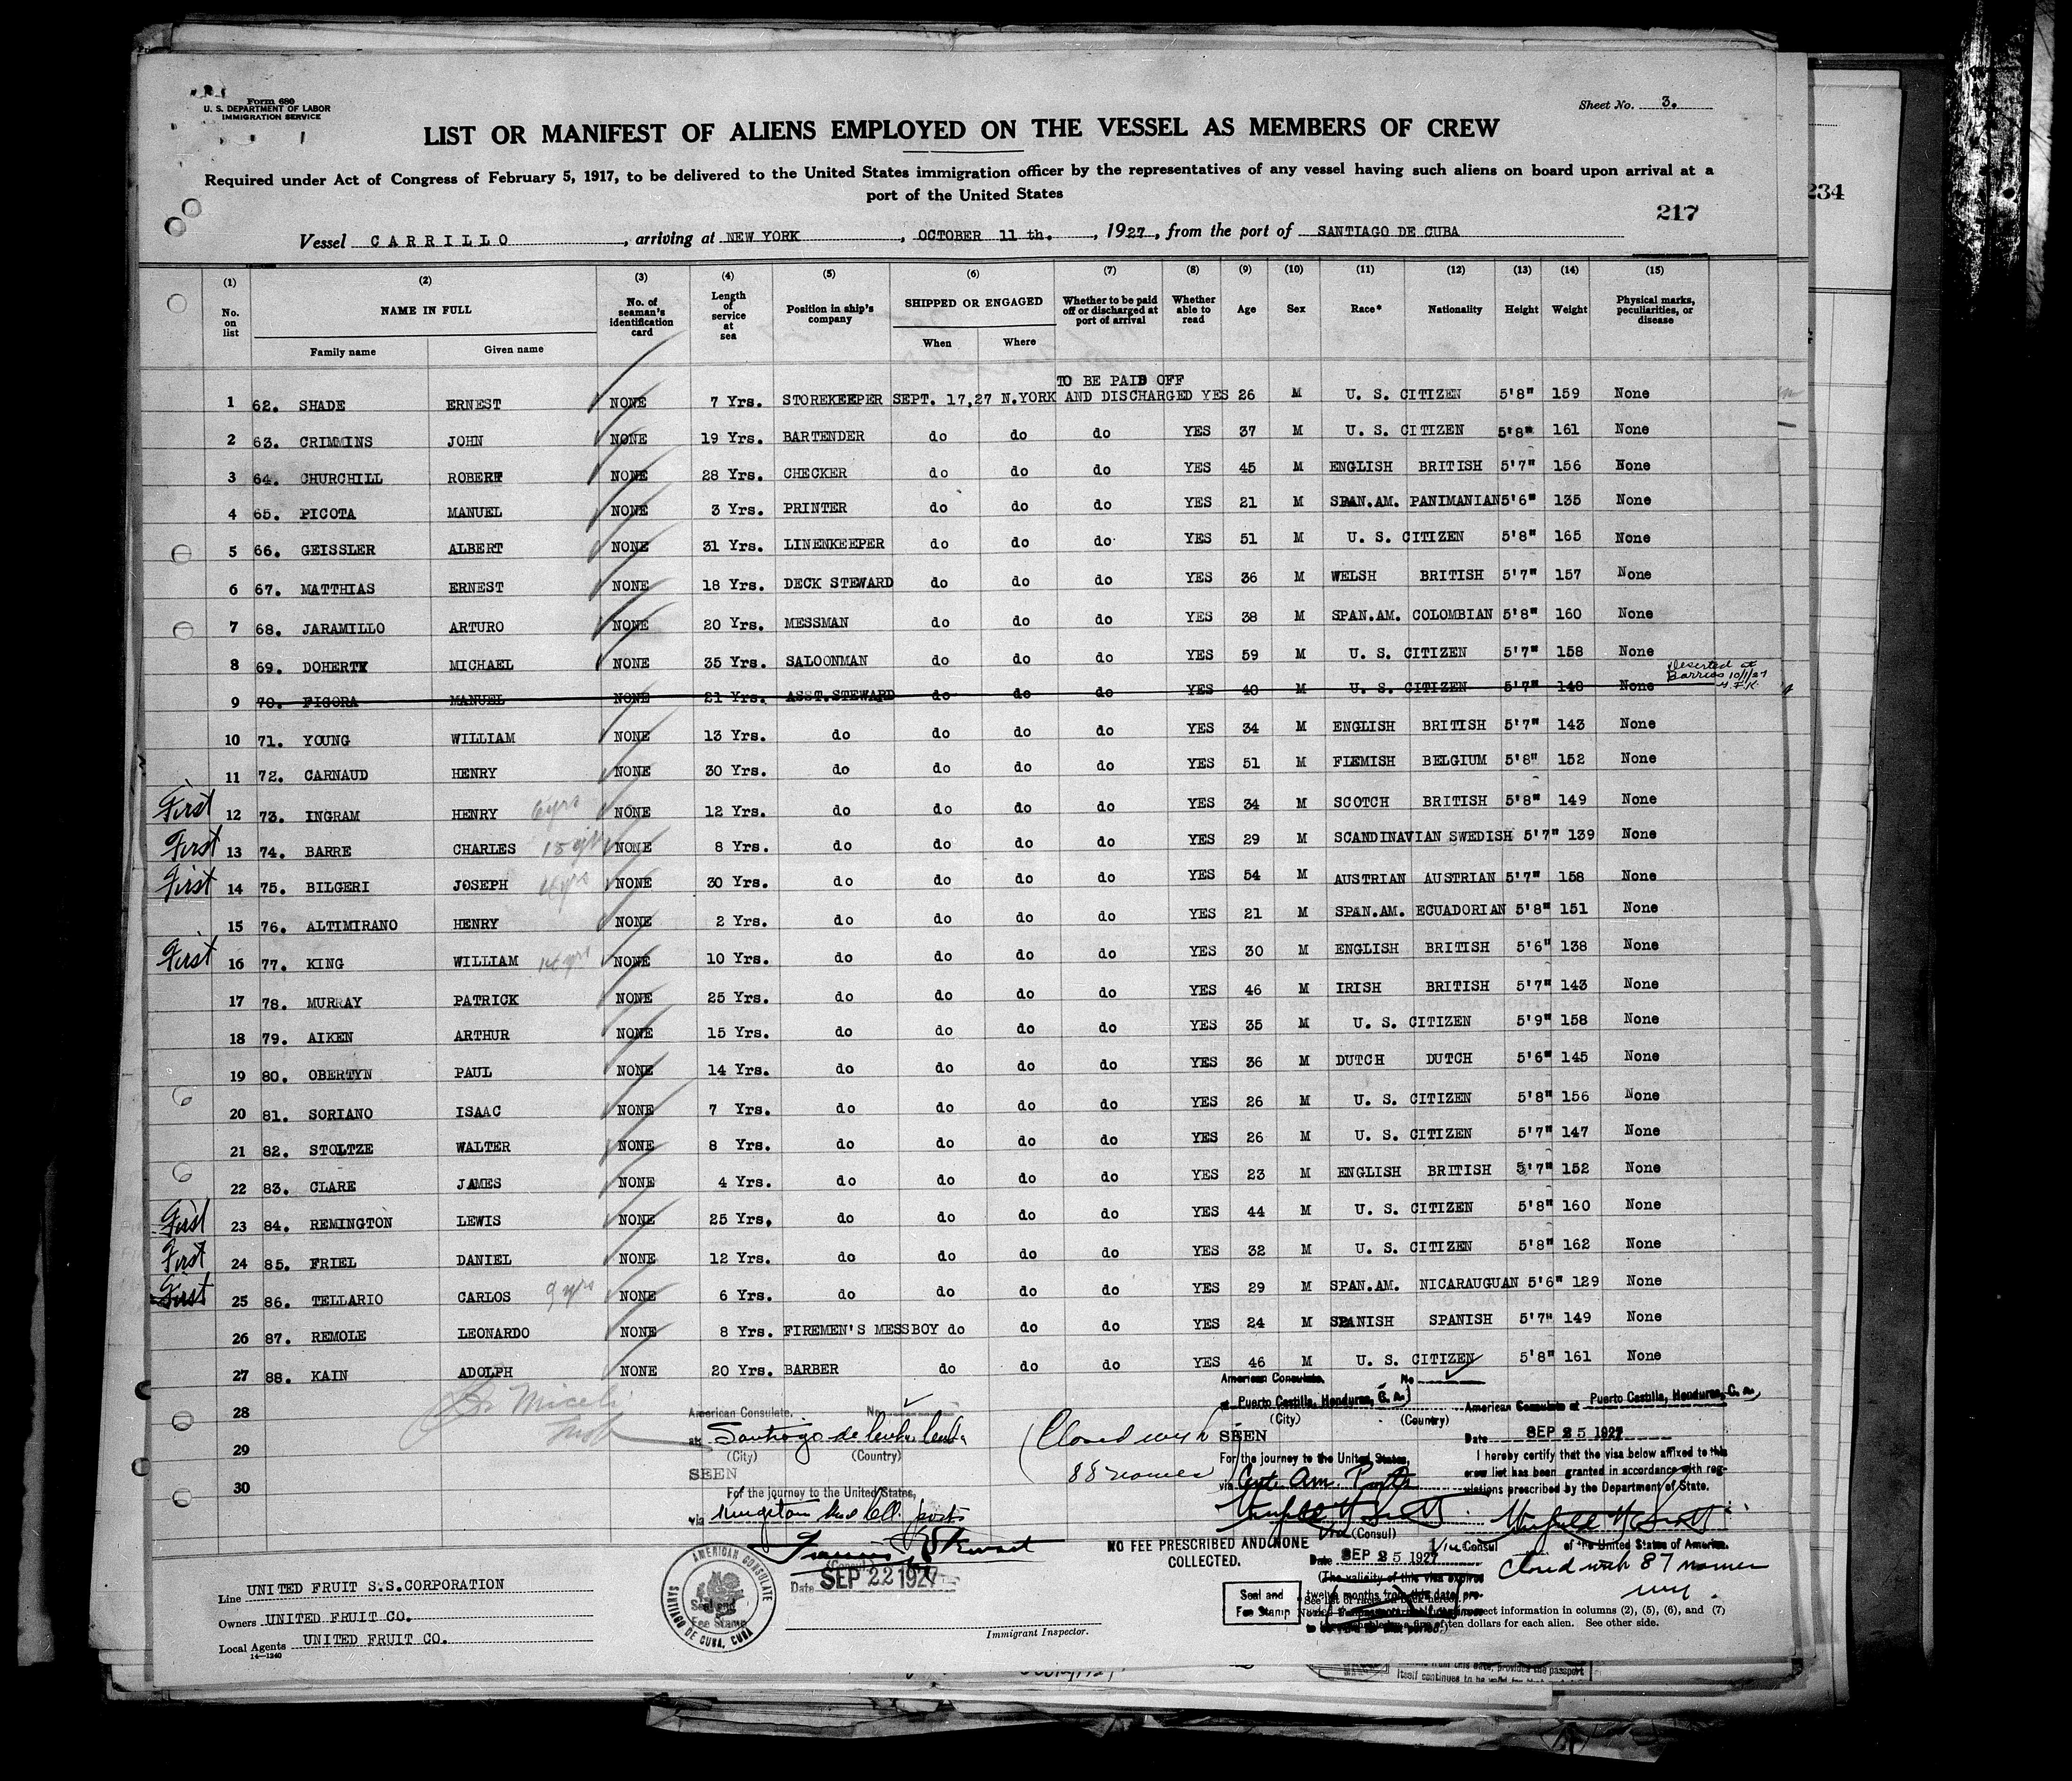 Form 680
U. S. DEPARTMENT OF LABOR
IMMIGRATION SERVICE
Sheet No. 3.
LIST OR MANIFEST OF ALIENS EMPLOYED ON THE VESSEL AS MEMBERS OF CREW
Required under Act of Congress of February 5, 1917, to be delivered to the United States immigration officer by the representatives of any vessel having such aliens on board upon arrival at a
port of the United States
217
234
Vessel CARRILLO, arriving at NEW YORK, OCTOBER 11 th., 1927, from the port of SANTIAGO DE CUBA
(1) (2) (3) (4) (5) (6) (7) (8) (9) (10) (11) (12) (13) (14) (15)
No. on list NAME IN FULL Family name Given name No. of seaman's identification card Length of service at sea Position in ship's company SHIPPED OR ENGAGED When Where Whether to be paid off or discharged at port of arrival Whether able to read Age Sex Race* Nationality Height Weight Physical marks, peculiarities, or disease
TO BE PAID OFF
1 62. SHADE ERNEST NONE 7 Yrs. STOREKEEPER SEPT. 17,27 N.YORK AND DISCHARGED YES 26 M U. S. CITIZEN 5'8" 159 None
2 63. CRIMMINS JOHN NONE 19 Yrs. BARTENDER do do do YES 37 M U. S. CITIZEN 5'8" 161 None
3 64. CHURCHILL ROBERT NONE 28 Yrs. CHECKER do do do YES 45 M ENGLISH BRITISH 5'7" 156 None
4 65. PICOTA MANUEL NONE 3 Yrs. PRINTER do do do YES 21 M SPAN.AM. PANIMANIAN 5'6" 135 None
5 66. GEISSLER ALBERT NONE 31 Yrs. LINENKEEPER do do do YES 51 M U. S. CITIZEN 5'8" 165 None
6 67. MATTHIAS ERNEST NONE 18 Yrs. DECK STEWARD do do do YES 36 M WELSH BRITISH 5'7" 157 None
7 68. JARAMILLO ARTURO NONE 20 Yrs. MESSMAN do do do YES 38 M SPAN.AM. COLOMBIAN 5'8" 160 None
8 69. DOHERTY MICHAEL NONE 35 Yrs. SALOONMAN do do do YES 59 M U. S. CITIZEN 5'7" 158 None
Deserted at
Barrios 10/1/27
9 70. FIGORA MANUEL NONE 21 Yrs. ASST.STEWARD do do do YES 40 M U. S. CITIZEN 5'7" 148 None
10 71. YOUNG WILLIAM NONE 13 Yrs. do do do do YES 34 M ENGLISH BRITISH 5'7" 143 None
11 72. CARNAUD HENRY NONE 30 Yrs. do do do do YES 51 M FLEMISH BELGIUM 5'8" 152 None
First 12 73. INGRAM HENRY 6 yrs NONE 12 Yrs. do do do do YES 34 M SCOTCH BRITISH 5'8" 149 None
First 13 74. BARRE CHARLES NONE 8 Yrs. do do do do YES 29 M SCANDINAVIAN SWEDISH 5'7" 139 None
First 14 75. BILGERI JOSEPH NONE 30 Yrs. do do do do YES 54 M AUSTRIAN AUSTRIAN 5'7" 158 None
15 76. ALTIMIRANO HENRY NONE 2 Yrs. do do do do YES 21 M SPAN.AM. ECUADORIAN 5'8" 151 None
First 16 77. KING WILLIAM NONE 10 Yrs. do do do do YES 30 M ENGLISH BRITISH 5'6" 138 None
17 78. MURRAY PATRICK NONE 25 Yrs. do do do do YES 46 M IRISH BRITISH 5'7" 143 None
18 79. AIKEN ARTHUR NONE 15 Yrs. do do do do YES 35 M U. S. CITIZEN 5'9" 158 None
19 80. OBERTYN PAUL NONE 14 Yrs. do do do do YES 36 M DUTCH DUTCH 5'6" 145 None
20 81. SORIANO ISAAC NONE 7 Yrs. do do do do YES 26 M U. S. CITIZEN 5'8" 156 None
21 82. STOLTZE WALTER NONE 8 Yrs. do do do do YES 26 M U. S. CITIZEN 5'7" 147 None
22 83. CLARE JAMES NONE 4 Yrs. do do do do YES 23 M ENGLISH BRITISH 5'7" 152 None
First 23 84. REMINGTON LEWIS NONE 25 Yrs. do do do do YES 44 M U. S. CITIZEN 5'8" 160 None
First 24 85. FRIEL DANIEL NONE 12 Yrs. do do do do YES 32 M U. S. CITIZEN 5'8" 162 None
First 25 86. TELLARIO CARLOS 9 yrs NONE 6 Yrs. do do do do YES 29 M SPAN.AM. NICARAUGUAN 5'6" 129 None
26 87. REMOLE LEONARDO NONE 8 Yrs. FIREMEN'S MESSBOY do do do YES 24 M SPANISH SPANISH 5'7" 149 None
27 88. KAIN ADOLPH NONE 20 Yrs. BARBER do do do YES 46 M U. S. CITIZEN 5'8" 161 None
28
29
30
American Consulate, No.
at Santiago de Cuba Cuba
(City) (Country)
SEEN
For the journey to the United States,
via Kingston and Col. ports
(Consul)
Date SEP 22 1927
AMERICAN CONSULATE
SANTIAGO DE CUBA, CUBA
Seal and
Fee Stamp
Closed with
88 names
American Consulate, No
at Puerto Castilla, Honduras, C. A.
(City) (Country)
SEEN
For the journey to the United States,
via Cent. Am. Ports
Winfield H Scott
Vice (Consul)
Date SEP 25 1927
(The validity of this visa expires
twelve months from this date, pro-
NO FEE PRESCRIBED AND NONE
COLLECTED.
Seal and
Fee Stamp
American Consulate at Puerto Castilla, Honduras, C. A.,
Date SEP 25 1927
I hereby certify that the visa below affixed to this
crew list has been granted in accordance with reg-
ulations prescribed by the Department of State.
Winfield H Scott
Vice Consul of the United States of America.
Closed with 87 names
*See list of races on back hereof.
incorrect information in columns (2), (5), (6), and (7)
fine of ten dollars for each alien. See other side.
Line UNITED FRUIT S.S.CORPORATION
Owners UNITED FRUIT CO.
Local Agents UNITED FRUIT CO.
14—1240
Immigrant Inspector.